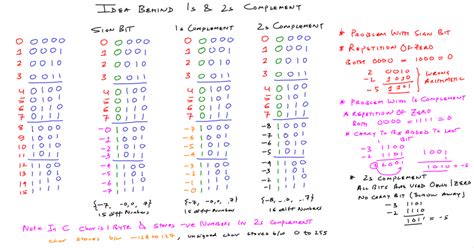 IDEA BEHIND 1s & 2s COMPLEMENT
SIGN BIT
1s COMPLEMENT
2s COMPLEMENT
0 0000 0 0000 0 0000 0 0000
1 0001 1 0001 1 0001 1 0001
2 0010 2 0010 2 0010 2 0010
3 0011 3 0011 3 0011 3 0011
4 0100 4 0100 4 0100 4 0100
5 0101 5 0101 5 0101 5 0101
6 0110 6 0110 6 0110 6 0110
7 0111 7 0111 7 0111 7 0111
8 1000 -0 1000 -7 1000 -8 1000
9 1001 -1 1001 -6 1001 -7 1001
10 1010 -2 1010 -5 1010 -6 1010
11 1011 -3 1011 -4 1011 -5 1011
12 1100 -4 1100 -3 1100 -4 1100
13 1101 -5 1101 -2 1101 -3 1101
14 1110 -6 1110 -1 1110 -2 1110
15 1111 -7 1111 -0 1111 -1 1111
{-7, -0, 0, 7}
15 diff Numbers
{-7, -0, 0, ..7}
15 diff Numbers
{-8, -0, .. 7}
16 diff Numbers
* PROBLEM WITH SIGN BIT
* REPETITION OF ZERO
BOTH 0000 = 1000 = 0
2 0010
-2 1010
-5 1101
WRONG
ARITHMETIC
* PROBLEM WITH 1s COMPLEMENT
REPETITION OF ZERO
BOTH 0000 = 1111 = 0
* CARRY TO BE ADDED TO LAST
BIT
-3 1100
-2 1101
1001
1010 = -5
* 2s COMPLEMENT
ALL BITS ARE USED ONLY 1 ZERO
NO CARRY BIT (THROW AWAY)
-3 1101
-2 1110
1011 = -5
Note IN C char is 1 BYTE & stores -ve NUMBERS IN 2s COMPLEMENT
char stores b/w -128 to 127, unsigned char stores b/w 0 to 255